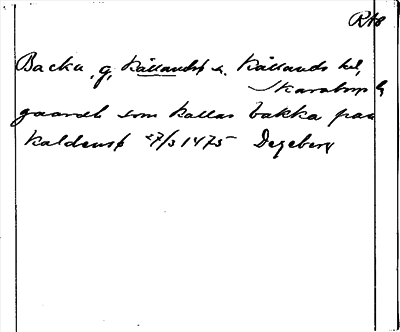 RA8
Backa, g, Kållandsö s. Kållands hd,
Skaraborgs l.
gaardh som kallas bakka paa
kaldensö 27/3 1475 Degeberg